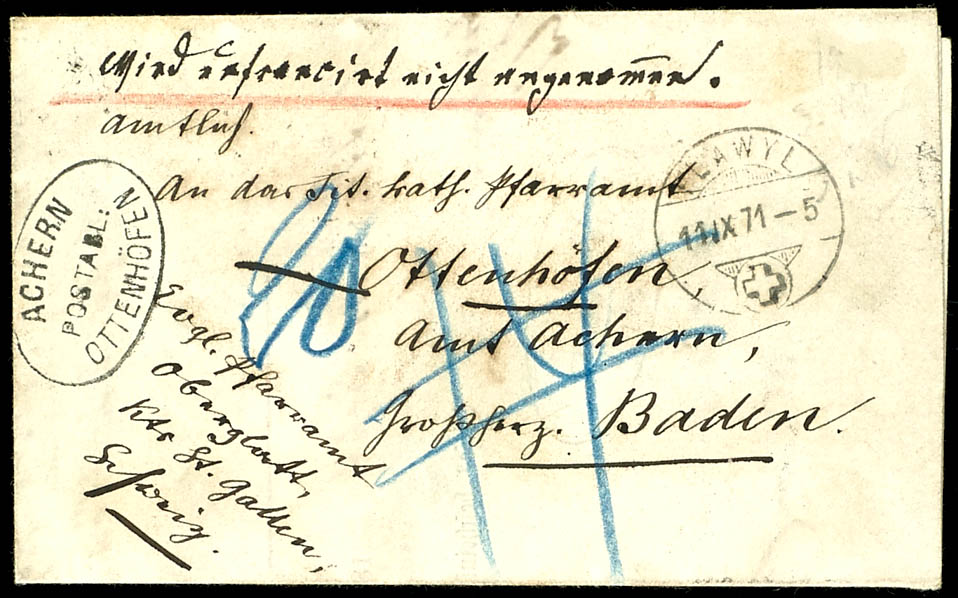 Wird unfrancirt nicht angenommen.
Amtlich.
An das Tit. kath. Pfarramt
Ottenhöfen,
Amt Achern,
Großherz. Baden.
Evgl. Pfarramt
Oberglatt,
Kts St. Gallen,
Schweiz.
ACHERN
POSTABL:
OTTENHÖFEN
FLAWYL
11 IX 71 - 5